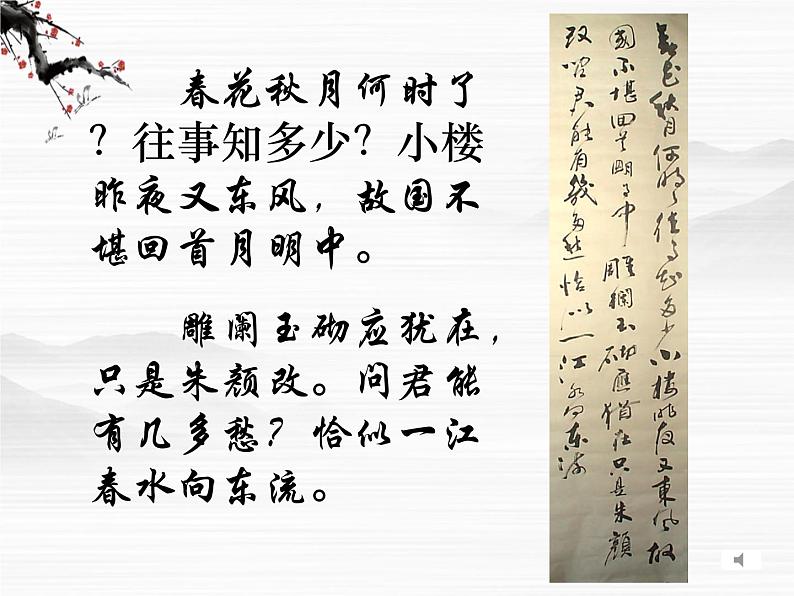 春花秋月何时了
？往事知多少？小楼
昨夜又东风，故国不
堪回首月明中。
雕阑玉砌应犹在，
只是朱颜改。问君能
有几多愁？恰似一江
春水向东流。
春花秋月何时了往事知多少小楼昨夜又東风故
國不堪回首月明中雕闌玉砌應猶在只是朱顏
改问君能有幾多愁恰似一江春水向东流